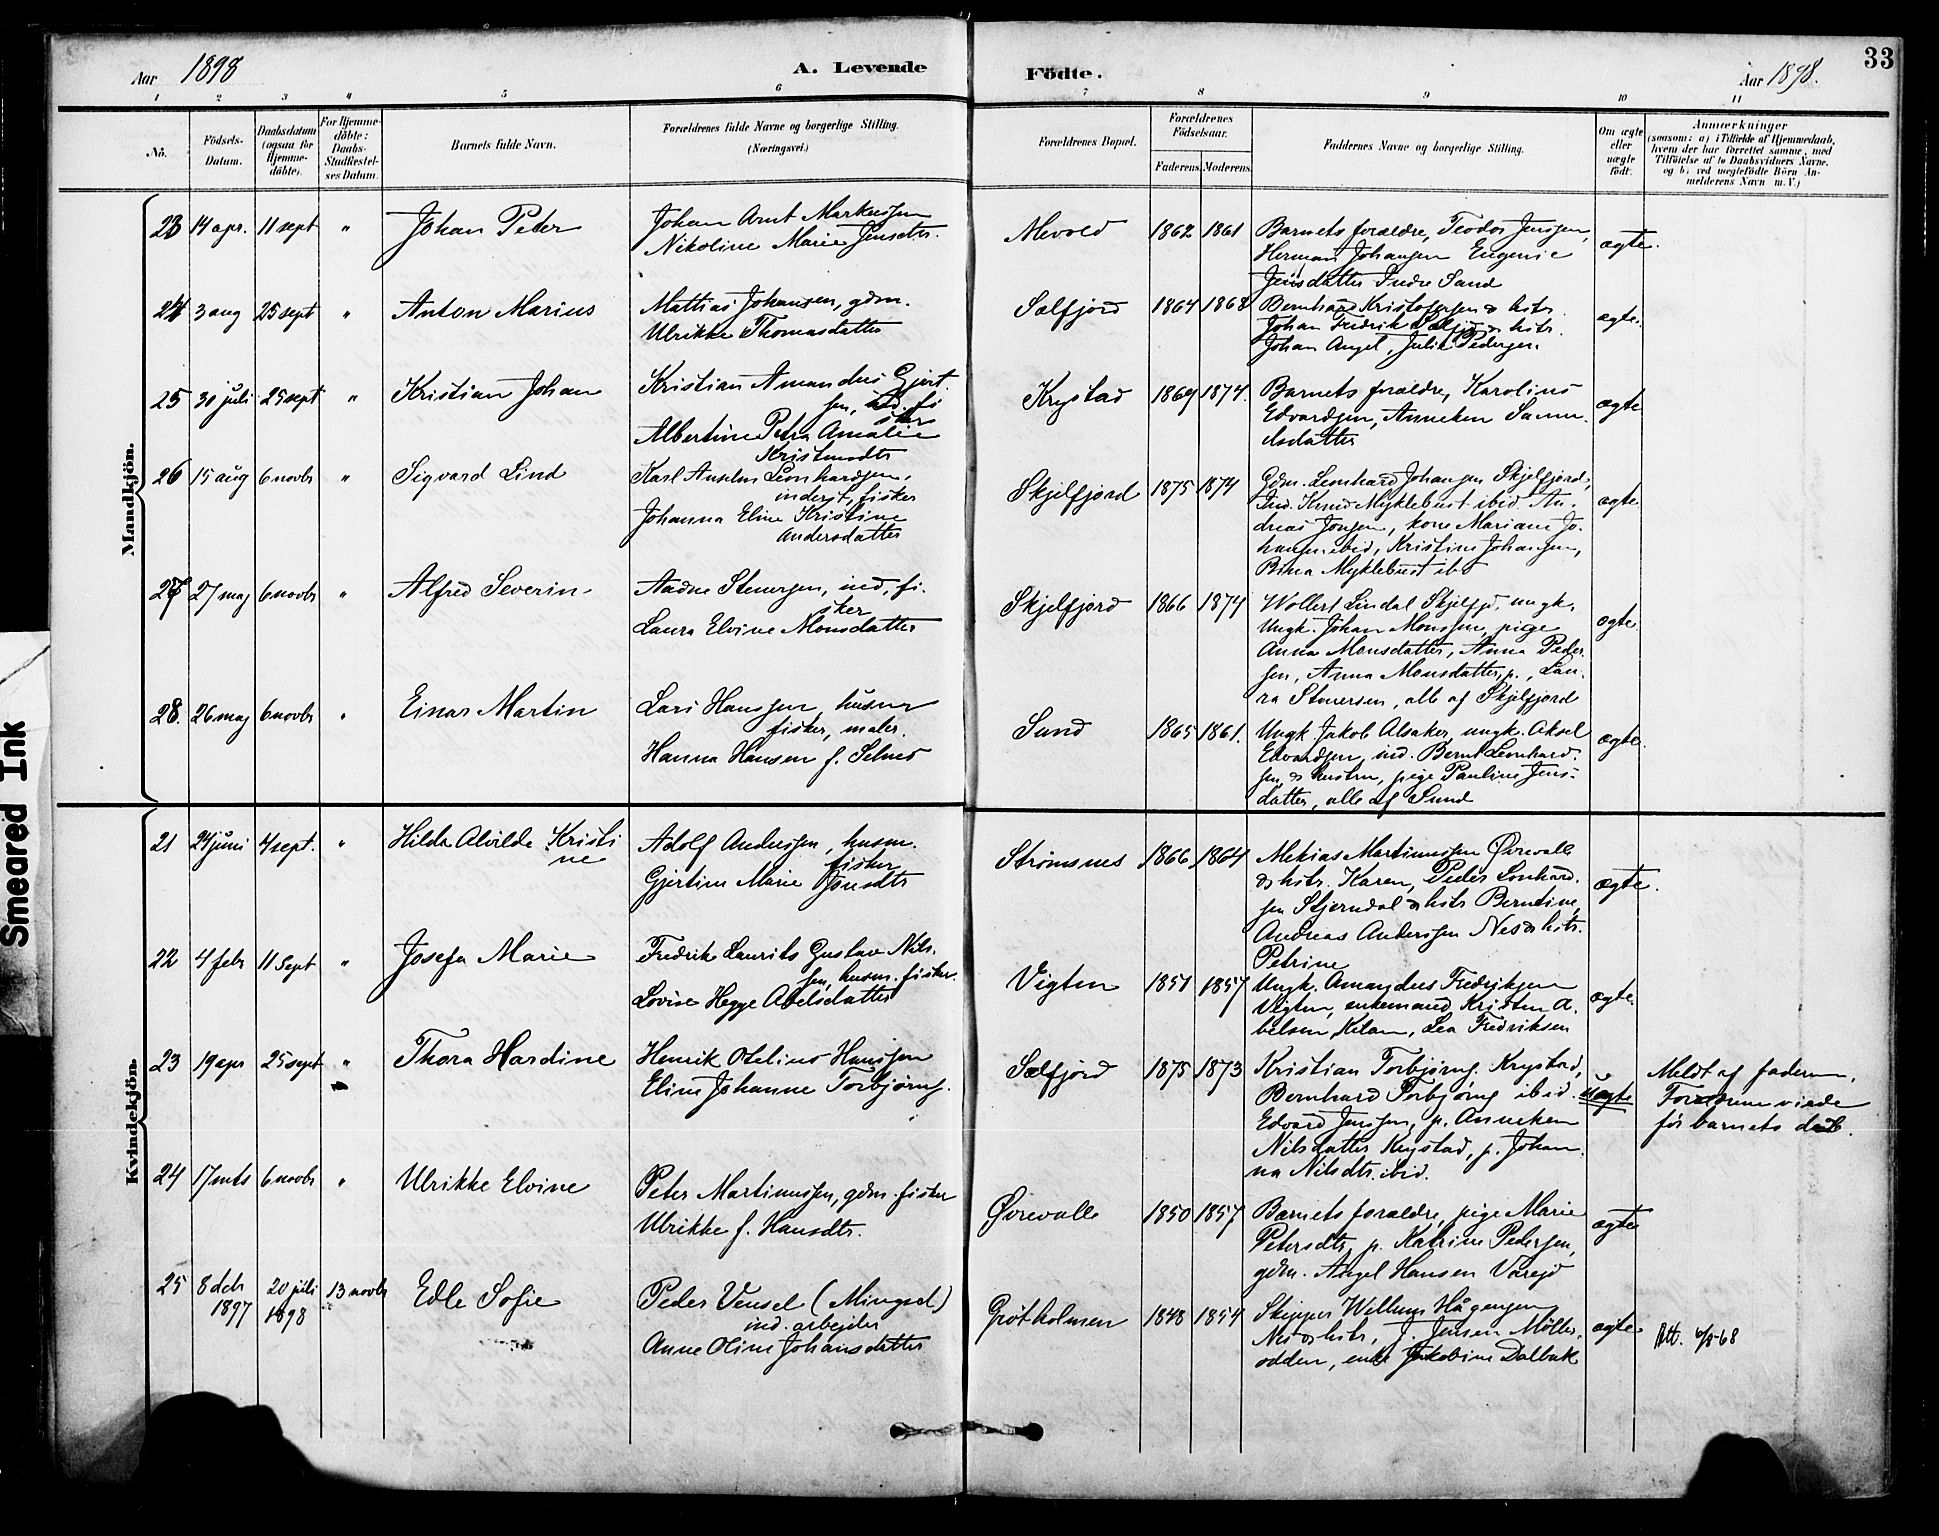 Aar 1898
A. Levende
Födte.
Aar 1898.
33
1 2 3 4 5 6 7 8 9 10 11
No.
Födsels-
Datum.
Daabsdatum
(ogsaa for
Hjemme-
döbte).
For Hjemme-
döbte:
Daabs-
Stadfæstel-
ses Datum.
Barnets fulde Navn.
Forældrenes fulde Navne og borgerlige Stilling.
(Næringsvei.)
Forældrenes Bopæl.
Forældrenes
Födselsaar.
Faderens Moderens
Faddernes Navne og borgerlige Stilling.
Om ægte
eller
uægte
födt.
Anmærkninger
(saasom: a) i Tilfælde af Hjemmedaab,
hvem der har forrettet samme, med
Tilföielse af to Daabsvidners Navne.
og b) ved uægtefödte Börn An-
melderens Navn m. V.)
Mandkjön.
23 14 apr. 11 sept " Johan Peter
Johan Arnt Markussen
Nikoline Marie Jensdtr.
1862 1861
Barnets forældre, Teodor Jenssen,
Herman Johansen Eugenie
Jensdatter Indre Sand
ægte.
24 3 aug 25 sept " Anton Marius
Mattias Johansen, gdm.
Ulrikke Thomasdatter
Selfjord 1864 1868
Bernhard Kristofersen & hstr.
Johan Fredrik Selfjd & hstr.
Johan Angel, Julie Pedersen.
ægte.
25 30 juli 25 sept " Kristian Johan
Kristian Amandus Gjert-
sen, ind. fi
sker
Albertine Petra Amalie
Kristinadtr
Krystad 1869 1874.
Barnets forældre, Karolius
Edvardsen, Anneken Samu-
elsdatter
ægte
26 15 aug 6 novbr " Sigvard Lind
Karl Anselm Leonhardsen,
inderst, fisker
Johanna Eline Kristine
Andersdatter
Skjelfjord 1875 1874
Gdm. Leonhard Johansen Skjelfjord,
Ind. Knud Myklebust ibid. An-
dreas Jonsen, kone Mariane Jo-
hansen ibid, Kristine Johansen,
Bina Myklebust ib
ægte
27 27 maj 6 novbr " Alfred Severin
Aadne Stenersen, ind, fi-
sker
Laura Elvine Monsdatter
Skjelfjord 1866 1874
Wollert Lindal Skjelfjd, ungk,
Ungk. Johan Monssen, pige
Anna Monsdatter, Anna Peder
sen, Anna Monsdatter, p., Lau-
ra Stenersen, alle af Skjelfjord
ægte
28. 26 maj 6 novbr " Einar Martin
Lars Hanssen, husm
fisker, maler.
Hanna Hansen f. Selnes
Sund 1865 1861.
Ungk Jakob Alsaker, ungk. Aksel
Edvardsen, ind. Bernt Leonhard-
sen & hustru, pige Pauline Jens-
datter, alle af Sund
ægte.
Kvindekjön.
21 24 juni 4 sept. " Hilda Alvilde Kristi
ne
Adolf Anderssen, husm.
fisker
Gjertine Marie Jensdtr
Strømsnes 1866 1864
Mekias Martinussen Øvrevalle
& hstr. Karen, Peder Lonhard-
sen Stjerndal & hstr Berntine,
Andreas Anderssen Nes & hstr.
Petrine
ægte.
22 4 febr 11 sept " Josefa Marie
Fredrik Laurits Gustav Nils-
sen, husm. fisker.
Lovise Hegge Abelsdatter
Vigten 1851 1857
Ungk. Amandus Fredriksen
Vigten, enkemand, Kristen A-
belsen Kilan, Lea Fredriksen
ægte
23 19 apr 25 sept " Thora Hardine
Henrik Otelius Hanssen
Eline Johanne Torbjørns.
Selfjord 1875 1873
Kristian Torbjørns. Krystad,
Bernhard Torbjørns ibid.
Edvard Jenssen, p. Anneken
Nilsdatter Krystad, p. Johan-
na Nilsdtr. ibid.
uægte
Meldt af faderen.
Forældrene viede
før barnets daab.
24 17 mts 6 novbr " Ulrikke Elvine
Peter Martinussen, gdm. fisker
Ulrikke f. Hansdtr.
Øvrevalle 1850 1857
Barnets forældre, pige Marie
Petersdtr, p. Katrine Pedersen,
gdm. Angel Hansen Varejd
ægte
25 8 dcb 20 juli 13 novbr Edle Sofie
1897 1898
Peder Vensel (Mingsel)
ind. arbejder
Anne Oline Johansdatter
Grøtholmen 1848 1854
Skipper Wellum Hågensen
Nes & hstr, J. Jensen Möller-
odden, enke Jakobine Dalbak
ægte
Att. 6/5-68
Smeared Ink